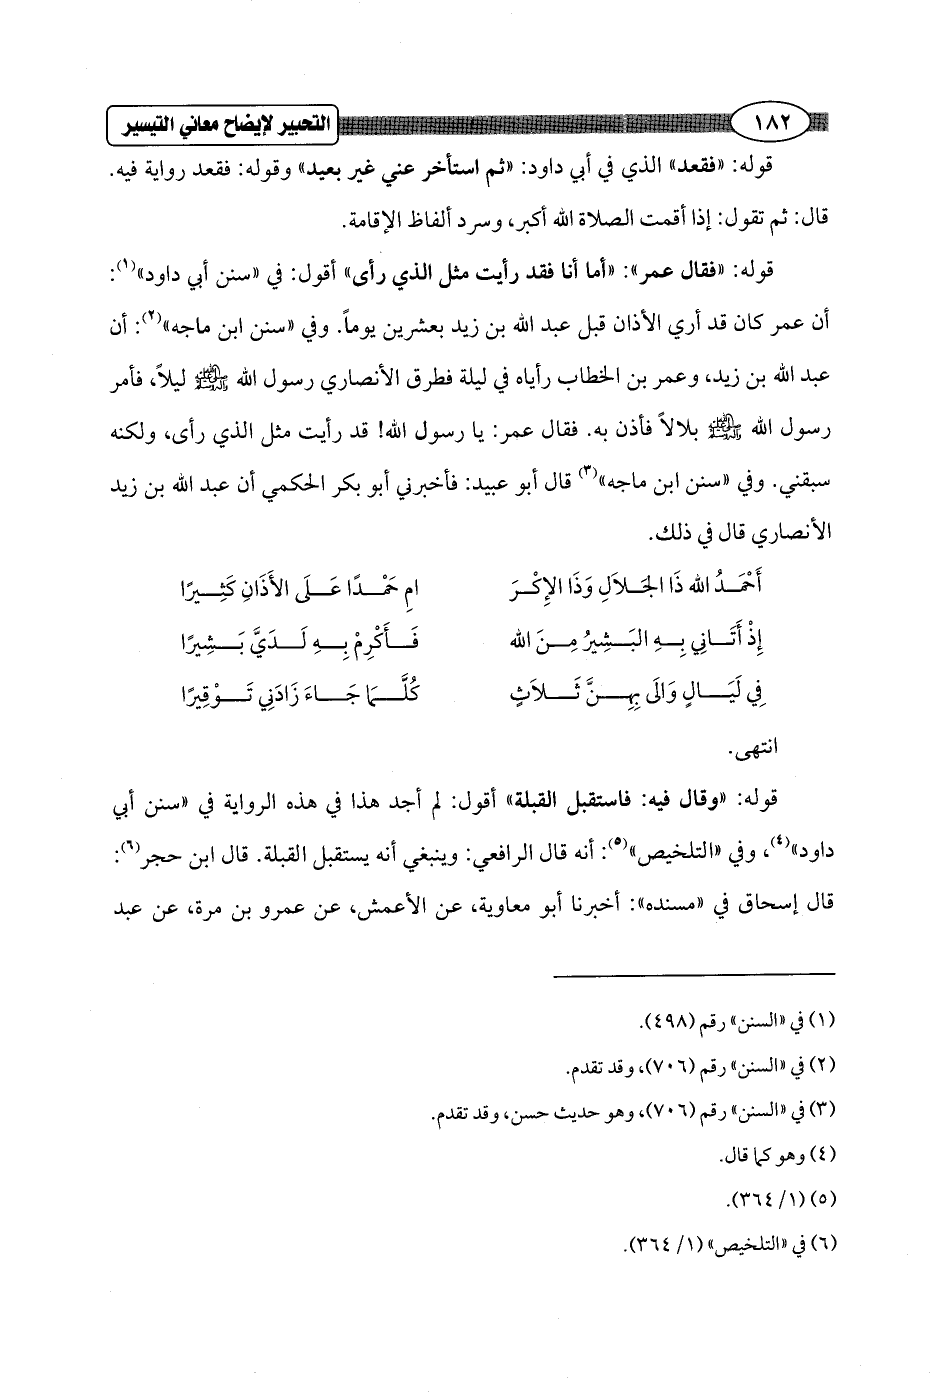 ١٨٢ التحبير لإيضاح معاني التيسير
قوله: «فقعد» الذي في أبي داود: «ثم استأخر عني غير بعيد» وقوله: فقعد رواية فيه.
قال: ثم تقول: إذا أقمت الصلاة الله أكبر، وسرد ألفاظ الإقامة.
قوله: «فقال عمر»: «أما أنا فقد رأيت مثل الذي رأى» أقول: في «سنن أبي داود»(١):
أن عمر كان قد أري الأذان قبل عبد الله بن زيد بعشرين يوماً. وفي «سنن ابن ماجه»(٢): أن
عبد الله بن زيد، وعمر بن الخطاب رأياه في ليلة فطرق الأنصاري رسول الله ﷺ ليلاً، فأمر
رسول الله ﷺ بلالاً فأذن به. فقال عمر: يا رسول الله! قد رأيت مثل الذي رأى، ولكنه
سبقني. وفي «سنن ابن ماجه»(٣) قال أبو عبيد: فأخبرني أبو بكر الحكمي أن عبد الله بن زيد
الأنصاري قال في ذلك.
أَحْمَدُ الله ذَا الجَلاَلِ وَذَا الإِكْرَ امِ حَمْدًا عَلَى الأَذَانِ كَثِيرًا
إِذْ أَتَانِي بِهِ البَشِيرُ مِنَ الله فَأَكْرِمْ بِهِ لَدَيَّ بَشِيرًا
فِي لَيَالٍ وَالَى بِهِنَّ ثَلاَثٍ كُلَّمَا جَاءَ زَادَنِي تَوْقِيرًا
انتهى.
قوله: «وقال فيه: فاستقبل القبلة» أقول: لم أجد هذا في هذه الرواية في «سنن أبي
داود»(٤)، وفي «التلخيص»(٥): أنه قال الرافعي: وينبغي أنه يستقبل القبلة. قال ابن حجر(٦):
قال إسحاق في «مسنده»: أخبرنا أبو معاوية، عن الأعمش، عن عمرو بن مرة، عن عبد
(١) في «السنن» رقم (٤٩٨).
(٢) في «السنن» رقم (٧٠٦)، وقد تقدم.
(٣) في «السنن» رقم (٧٠٦)، وهو حديث حسن، وقد تقدم.
(٤) وهو كما قال.
(٥) (١/ ٣٦٤).
(٦) في «التلخيص» (١/ ٣٦٤).